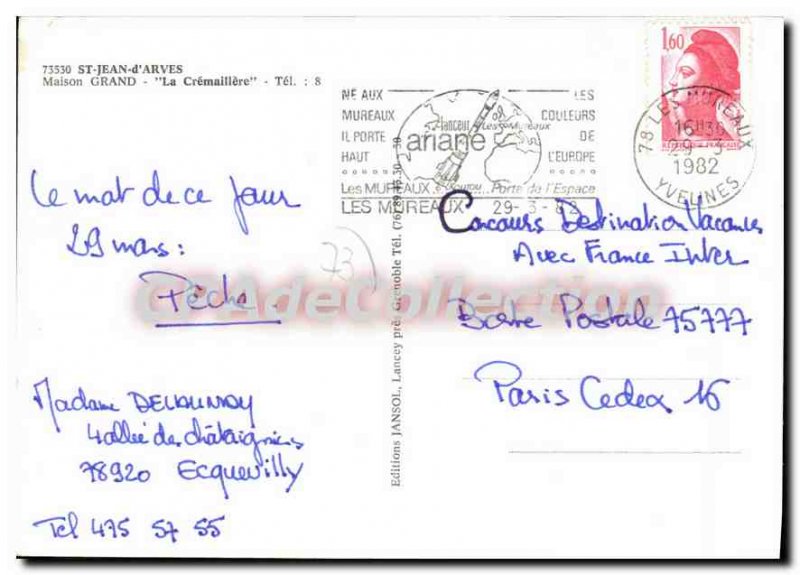 73530 ST-JEAN-d'ARVES
Maison GRAND - "La Crémaillère" - Tél. : 8
1,60
RÉPUBLIQUE FRANÇAISE
78 LES MUREAUX
16H30
29-3
1982
YVELINES
NÉ AUX
MUREAUX
IL PORTE
HAUT
lanceur
Les Mureaux
ariane
LES
COULEURS
DE
L'EUROPE
Les MUREAUX
Porte de l'Espace
LES MUREAUX 29-3-82
Le mot de ce jour
29 mars :
Pêche
73
Madame DELAUNAY
4 allée des châtaigniers
78920 Ecquevilly
Tel 475 57 55
Editions JANSOL, Lancey près Grenoble Tél. (76)
Concours Destination Vacances
Avec France Inter
Boite Postale 75777
Paris Cedex 16
CPAdeCollection